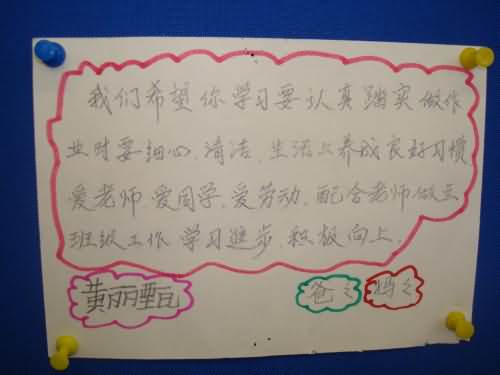 我们希望你学习要认真踏实做作
业时要细心.清洁.生活上养成良好习惯
爱老师.爱同学.爱劳动.配合老师做主
班级工作 学习进步.积极向上.
黄丽甄 爸爸 妈妈